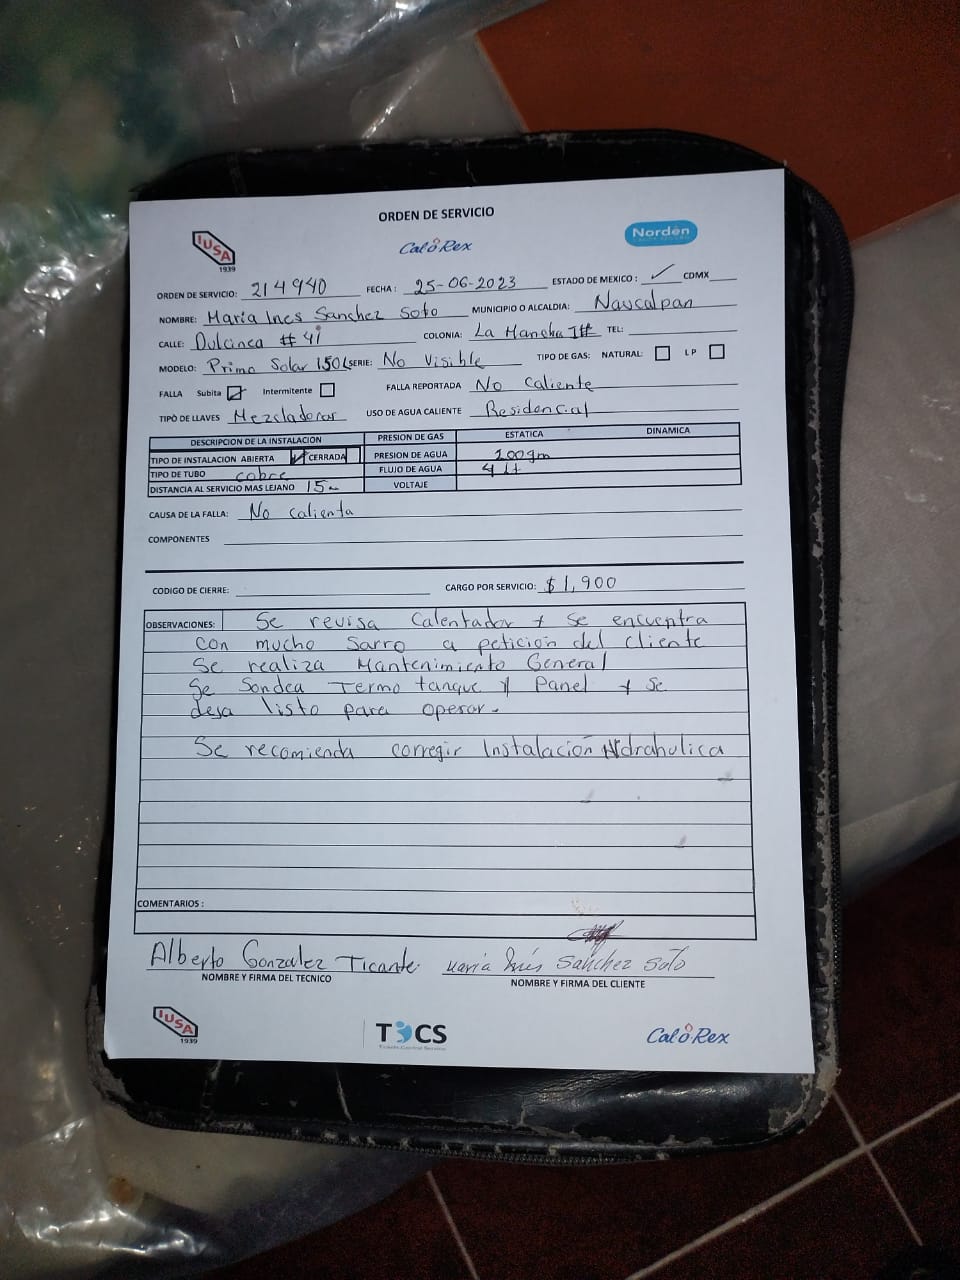 ORDEN DE SERVICIO
IUSA
1939
CalōRex
Nordén
ORDEN DE SERVICIO: 214940 FECHA : 25-06-2023 ESTADO DE MEXICO : ✓ CDMX
NOMBRE: María Ines Sanchez Soto MUNICIPIO O ALCALDIA: Naucalpan
CALLE: Dulcinea # 41 COLONIA: La Mancha I# TEL:
MODELO: Primo Solar 150L SERIE: No Visible TIPO DE GAS: NATURAL: LP
FALLA Subita ✓ Intermitente FALLA REPORTADA No Caliente
TIPO DE LLAVES Mezcladoras USO DE AGUA CALIENTE Residencial
DESCRIPCION DE LA INSTALACION PRESION DE GAS ESTATICA DINAMICA
TIPO DE INSTALACION ABIERTA ✓ CERRADA PRESION DE AGUA 200gm
TIPO DE TUBO cobre FLUJO DE AGUA 4 Lt
DISTANCIA AL SERVICIO MAS LEJANO 15 VOLTAJE
CAUSA DE LA FALLA: No calienta
COMPONENTES
CODIGO DE CIERRE: CARGO POR SERVICIO: $1,900
OBSERVACIONES: Se revisa Calentador y se encuentra
con mucho Sarro a petición del Cliente
Se realiza Mantenimiento General
Se Sondea Termo tanque y Panel y se
deja listo para operar.
Se recomienda corregir Instalación Hidrahulica
COMENTARIOS :
Alberto Gonzalez Ticante. María Inés Sánchez Soto
NOMBRE Y FIRMA DEL TECNICO NOMBRE Y FIRMA DEL CLIENTE
IUSA
1939
TICS
CalōRex